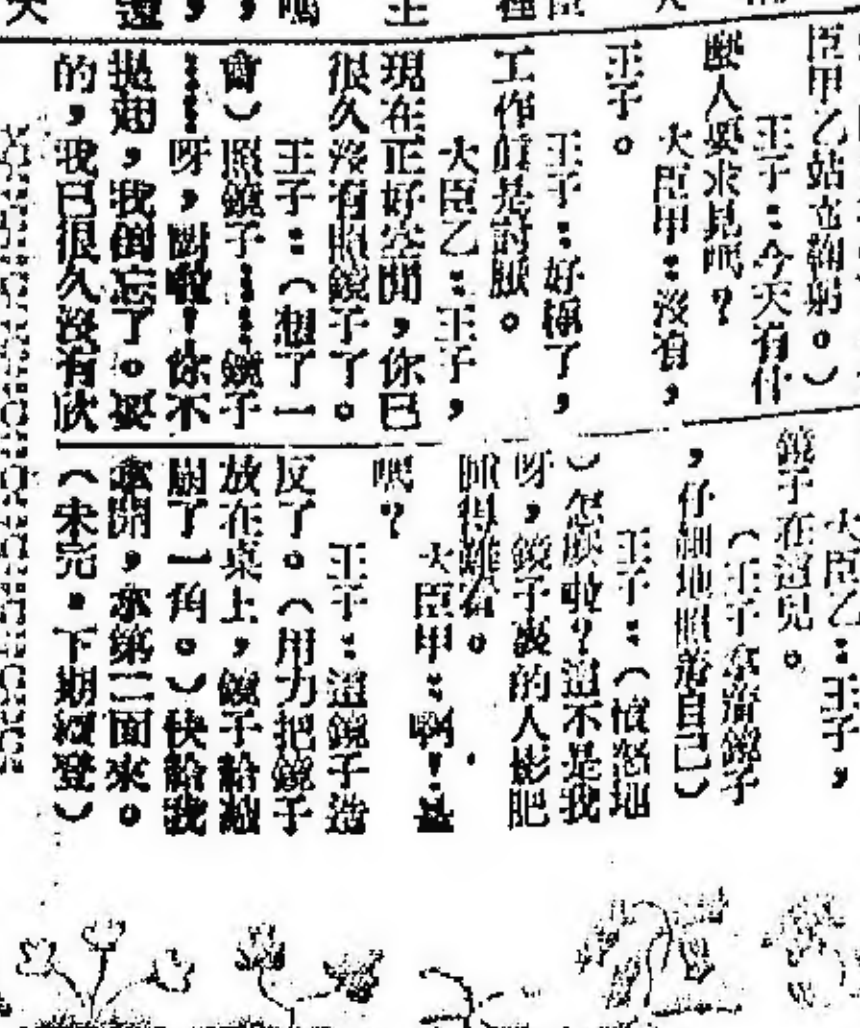 臣甲乙站立鞠躬。)
王子:今天有什
麼人要求見嗎?
大臣甲:沒有,
王子。
王子:好極了,
工作眞是討厭。
大臣乙:王子,
現在正好空閒,你已
很久沒有照鏡子了。
王子:(想了一
會)照鏡子……鏡子
……呀,對啦!你不
提起,我倒忘了。
的,我已很久沒有欣
大臣乙:王子,
鏡子在這兒。
(王子拿着鏡子
,仔細地照着自己)
王子:(憤怒地
)怎麼啦?這不是我
呀,鏡子裏的人影肥
得難看。
嗎?
大臣甲:啊!是
王子:這鏡子造
反了。(用力把鏡子
放在桌上,鏡子給
崩了一角。)快給我
拿開,拿第二面來。
(未完。下期續登)